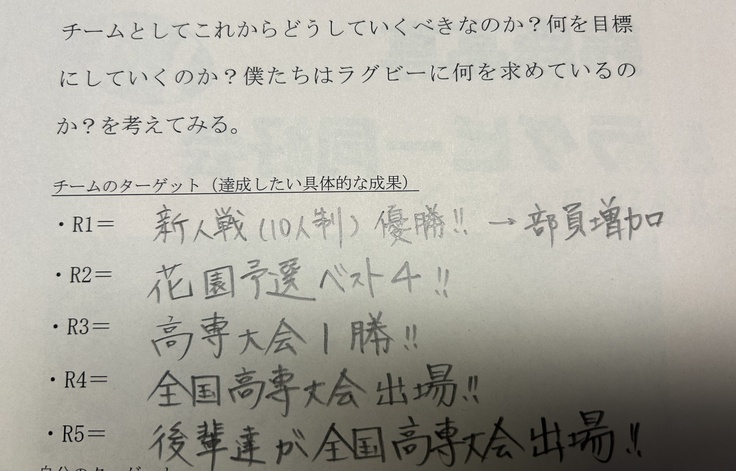 チームとしてこれからどうしていくべきなのか？何を目標
にしていくのか？僕たちはラグビーに何を求めているの
か？を考えてみる。
チームのターゲット（達成したい具体的な成果）
・R1＝ 新人戦(10人制) 優勝!! → 部員増加
・R2＝ 花園予選ベスト4!!
・R3＝ 高専大会1勝!!
・R4＝ 全国高専大会出場!!
・R5＝ 後輩達が全国高専大会出場!!